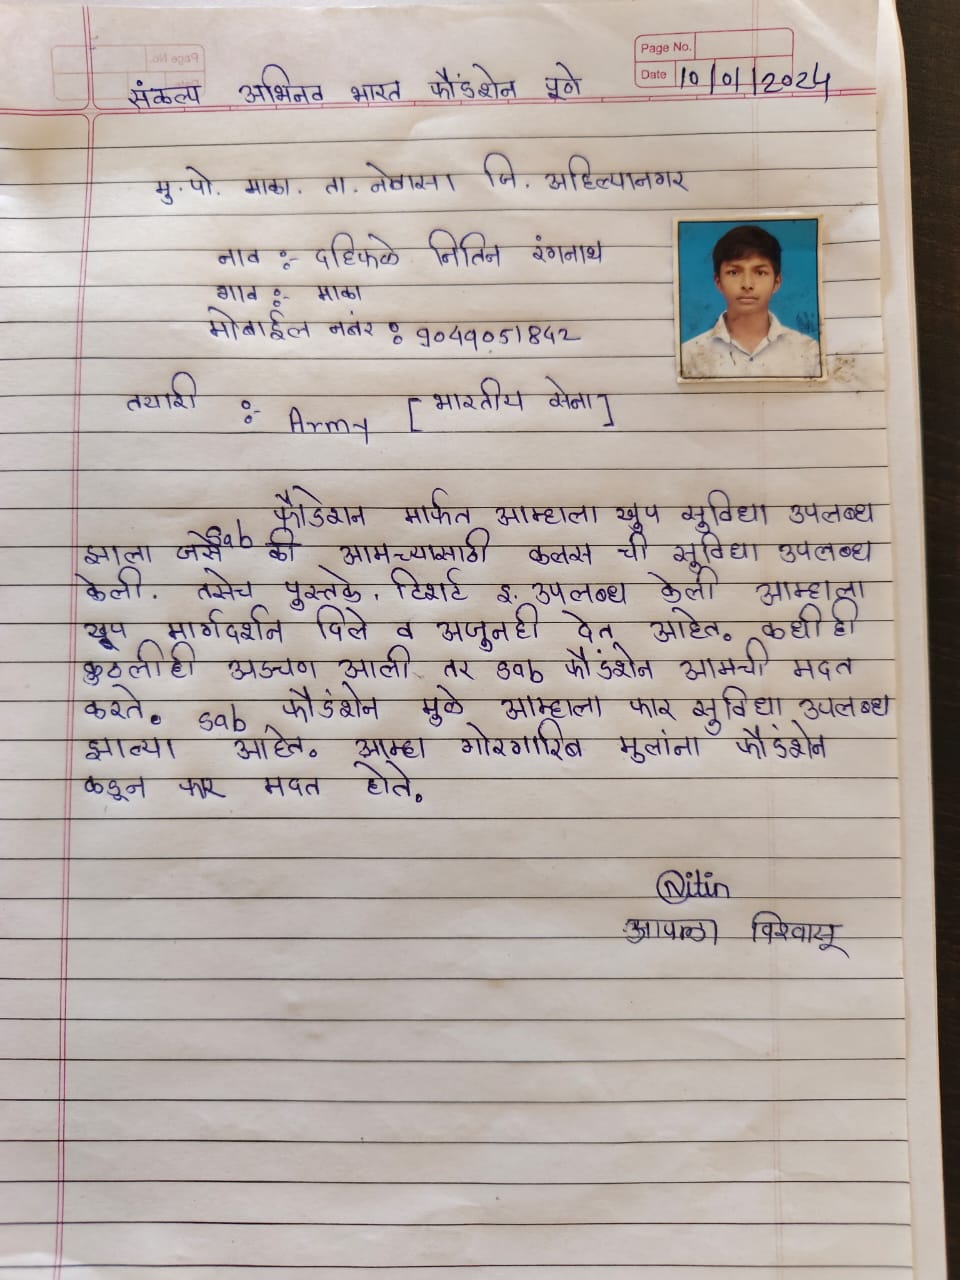 Page No.
Date 10/01/2024
संकल्प अभिनव भारत फौंडशेन पूणे
मु. पो. माका. ता. नेवासा जि. अहिल्यानगर
नाव :- दहिफळे नितिन रंगनाथ
गाव :- माका
मोबाईल नबंर : 9049051842
तयारी :- Army [भारतीय सेना]
फौडेशन मार्फत आम्हाला खुप सुविधा उपलब्ध
झाला जसे sab की आमच्यासाठी कलास ची सुविधा उपलब्ध
केली. तसेच पुस्तके, टिशर्ट इ. उपलब्ध केली आम्हाला
खूप मार्गदर्शन दिले व अजुनही देत आहेत. कधीही
कुठलीही अडचण आली तर sab फौंडशेन आमची मदत
करते. sab फौंडशेन मुळे आम्हाला फार सुविधा उपलब्ध
झाल्या आहेत. आम्हा गोरगारिब मुलांना फौंडशेन
कडून फार मदत होते.
Nitin
आपला विश्वासू